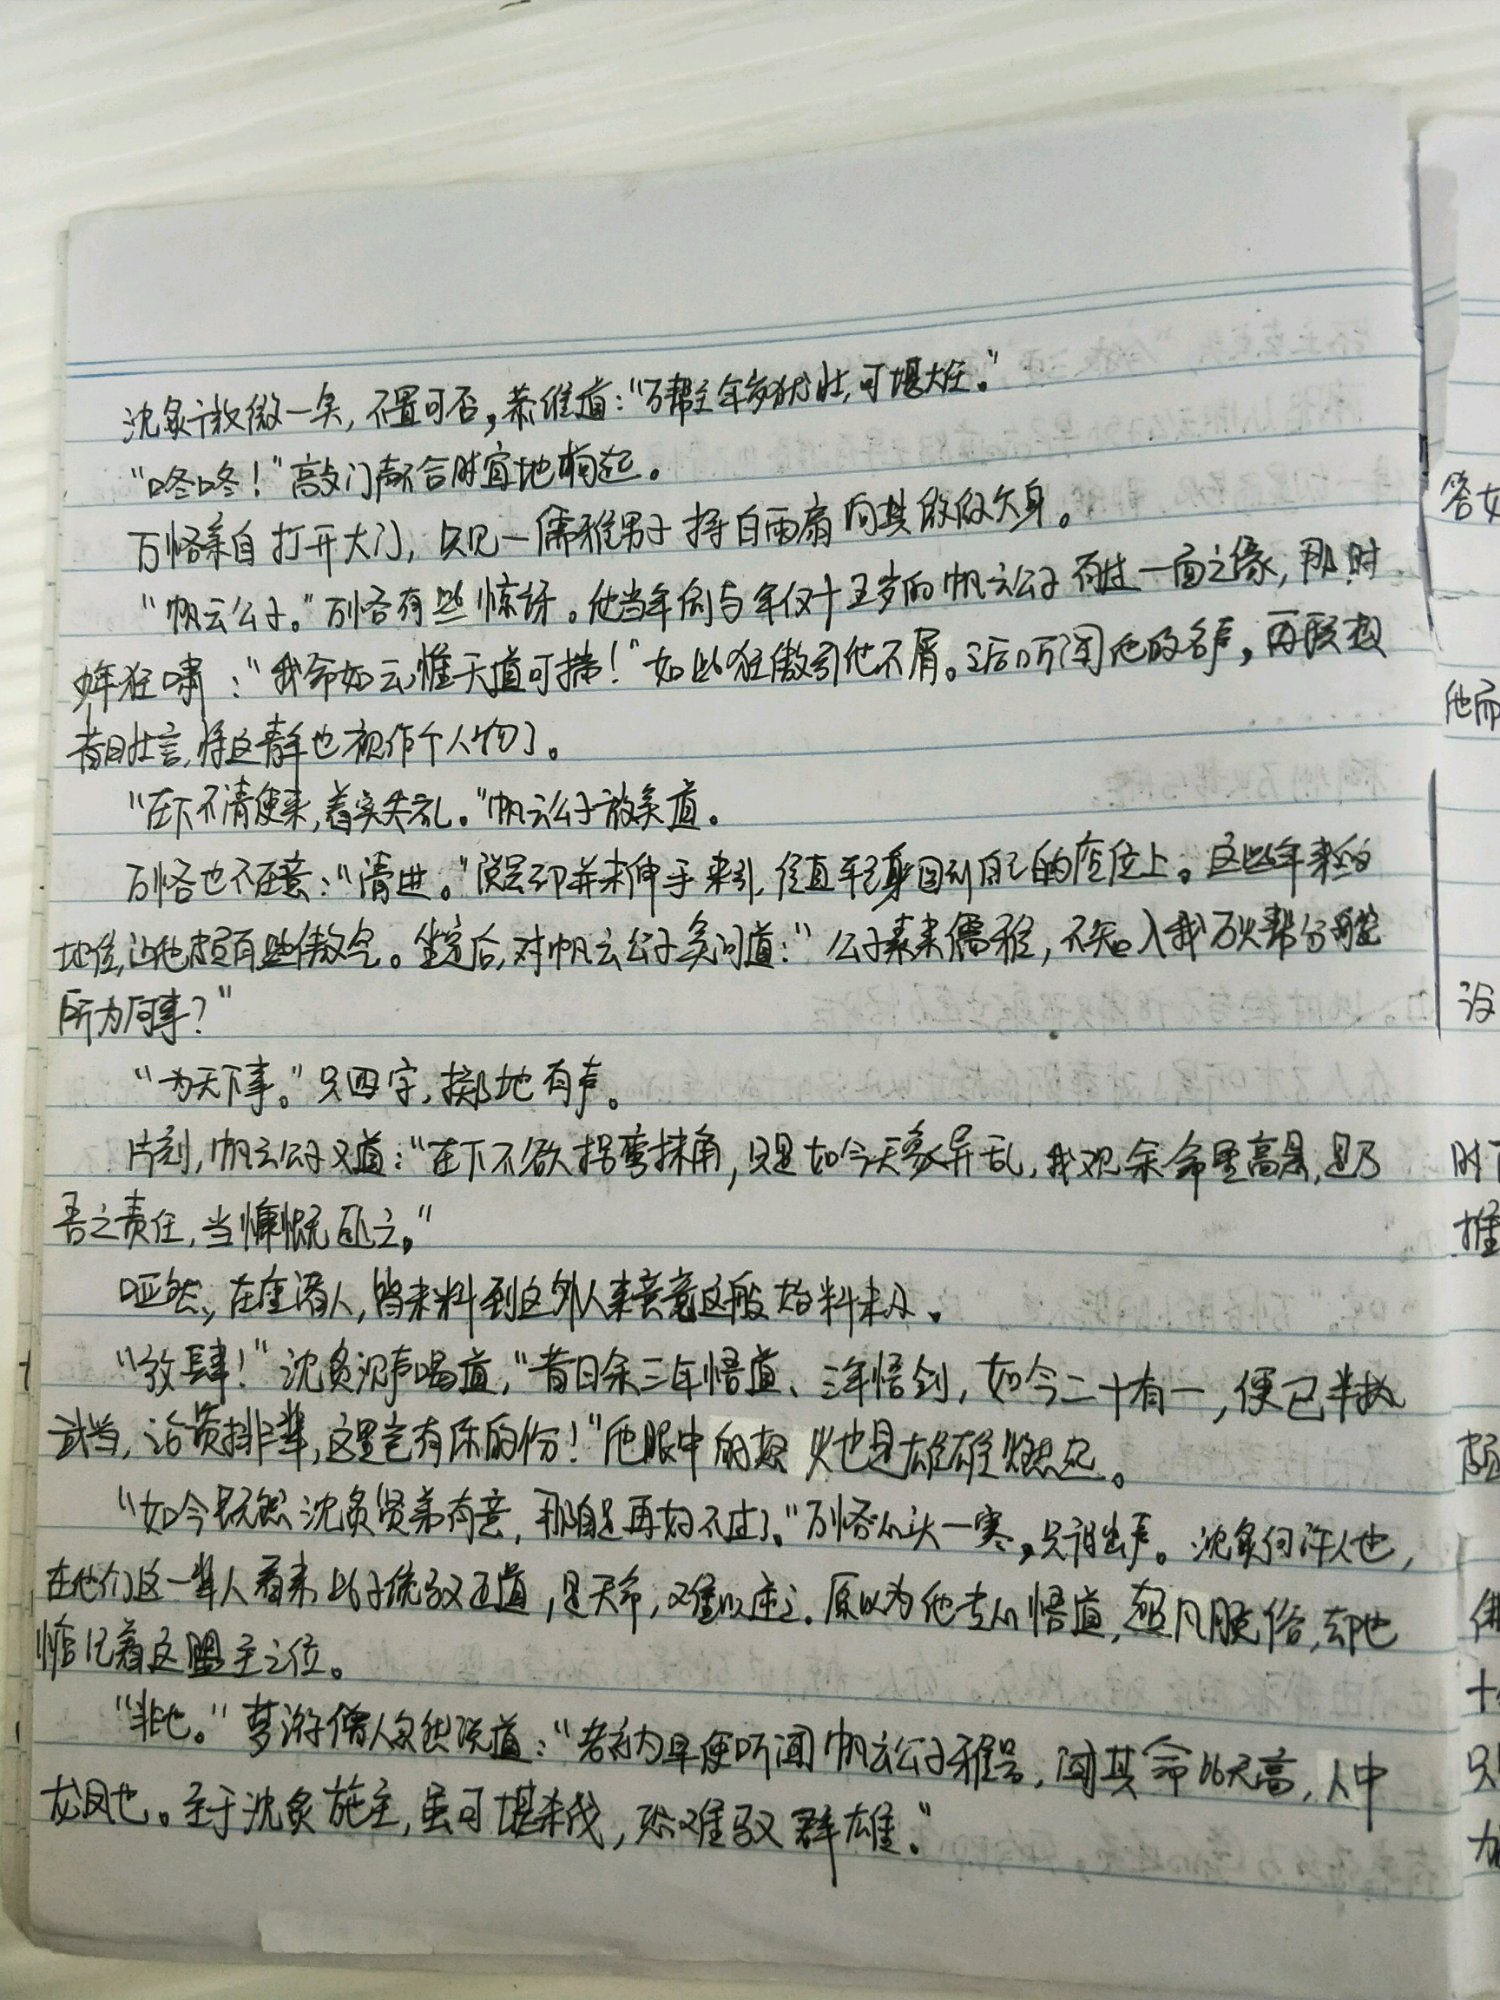 沈炙微微一笑，不置可否，恭维道：“万帮主年岁犹壮，可堪大任。”
“咚咚！”敲门声不合时宜地响起。
万恪亲自打开大门，只见一儒雅男子持白雨扇向其微微欠身。
“帆云公子。”万恪有些惊讶。他当年倒与年仅十五岁的帆云公子有过一面之缘，那时
少年狂啸：“我命如云，惟天道可拂！”如此狂傲引他不屑。之后历闻他的名声，再联想
昔日壮言，将这青年也视作个人物了。
“在下不请便来，着实失礼。”帆云公子放笑道。
万恪也不在意：“请进。”说是却并未伸手来引，径直转身回到自己的座位上。这些年来的
地位，让他颇有些傲气。坐定后，对帆云公子笑问道：“公子素来儒雅，不知入我万火帮分舵
所为何事？”
“为天下事。”只四字，掷地有声。
片刻，帆云公子又道：“在下不欲拐弯抹角，只是如今天象异乱，我观余命里高悬，是乃
吾之责任，当慷慨赴之。”
哑然，在座诸人，皆未料到这外人来意竟这般始料未及。
“放肆！”沈炙沉声喝道，“昔日余三年悟道、三年悟剑，如今二十有一，便已半执
武当，论资排辈，这里岂有你的份！”他眼中的怒火也是雄雄燃起。
“如今既然沈炙贤弟有意，那自是再好不过了。”万恪心头一寒，只调出声。沈炙何许人也，
在他们这一辈人看来此子统驭正道，是天命，难以逆之。原以为他专心悟道，超凡脱俗，却也
惦记着这盟主之位。
“非也。”梦游僧人忽然说道：“老衲早便听闻帆云公子雅号，闻其命比天高，人中
龙凤也。至于沈炙施主，虽可堪杀伐，恐难驭群雄。”
答女
他而
没
时
推
颇
佛
十
只
加